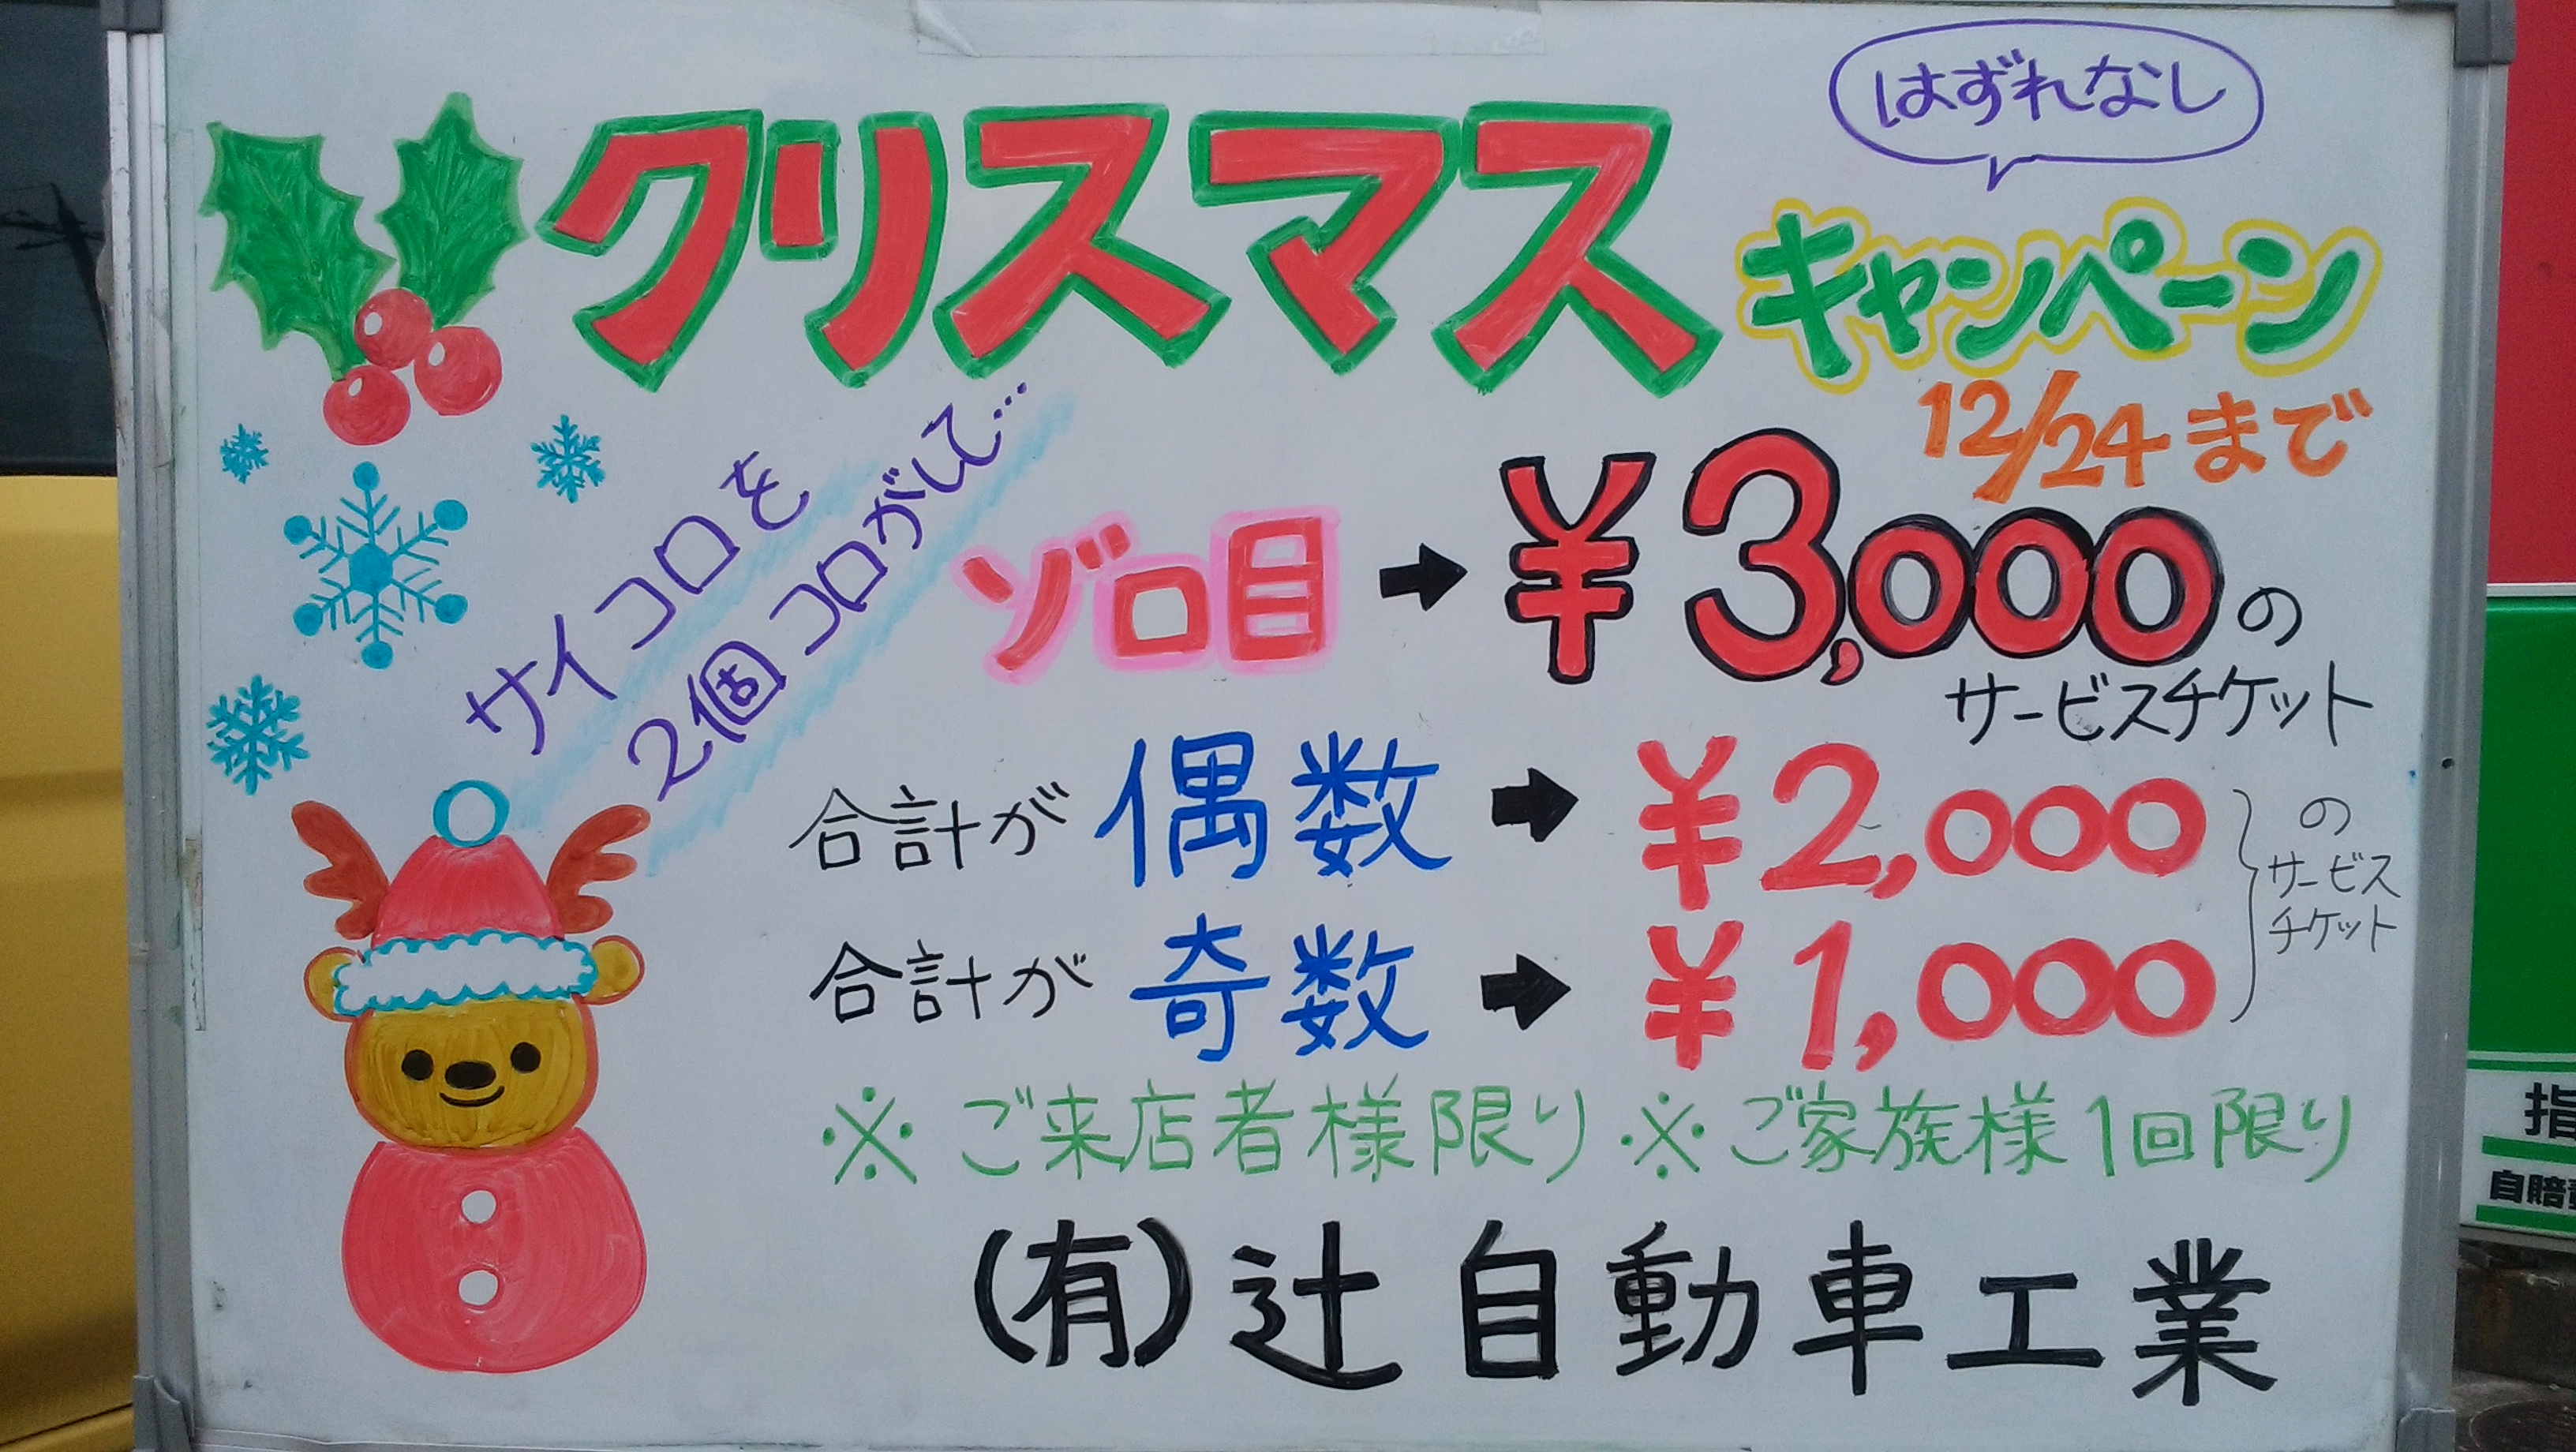 はずれなし
クリスマス
キャンペーン
12/24まで
サイコロを
2個コロがして…
ゾロ目→¥3,000の
サービスチケット
合計が偶数→¥2,000
合計が奇数→¥1,000
の
サービス
チケット
※ご来店者様限り ※ご家族様1回限り
(有)辻自動車工業
指
自賠